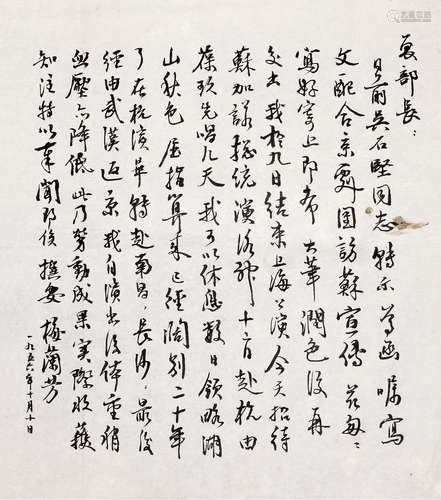 夏部长：
日前吴石堅同志轉示尊函嘱寫
文配合京劇團訪蘇宣傳兹匆匆
寫好寄上即希 大筆潤色後再
發出我於九日結束上海公演今天招待
蘇加諾總統演洛神十二日赴杭由
葆玖先唱几天我可以休息数日領略湖
山秋色屈指算来已經闊别二十年
了在杭演畢轉赴南昌，長沙，最後
經由武漢返京我自演出後体重稍
血壓亦降低此乃劳動成果实際收獲
知注特以奉聞即候 撰安 梅蘭芳
一九五六年十月十日